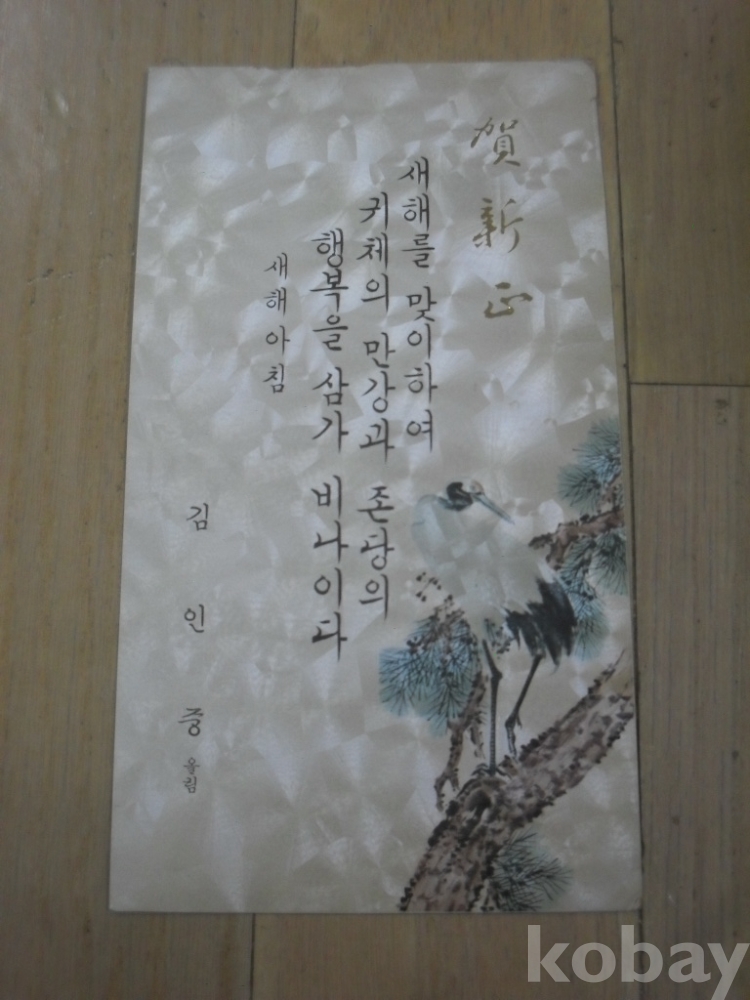 賀新正
새해를 맞이하여
귀체의 만강과 존당의
행복을 삼가 비나이다
새해아침
김 인 중 올림
kobay